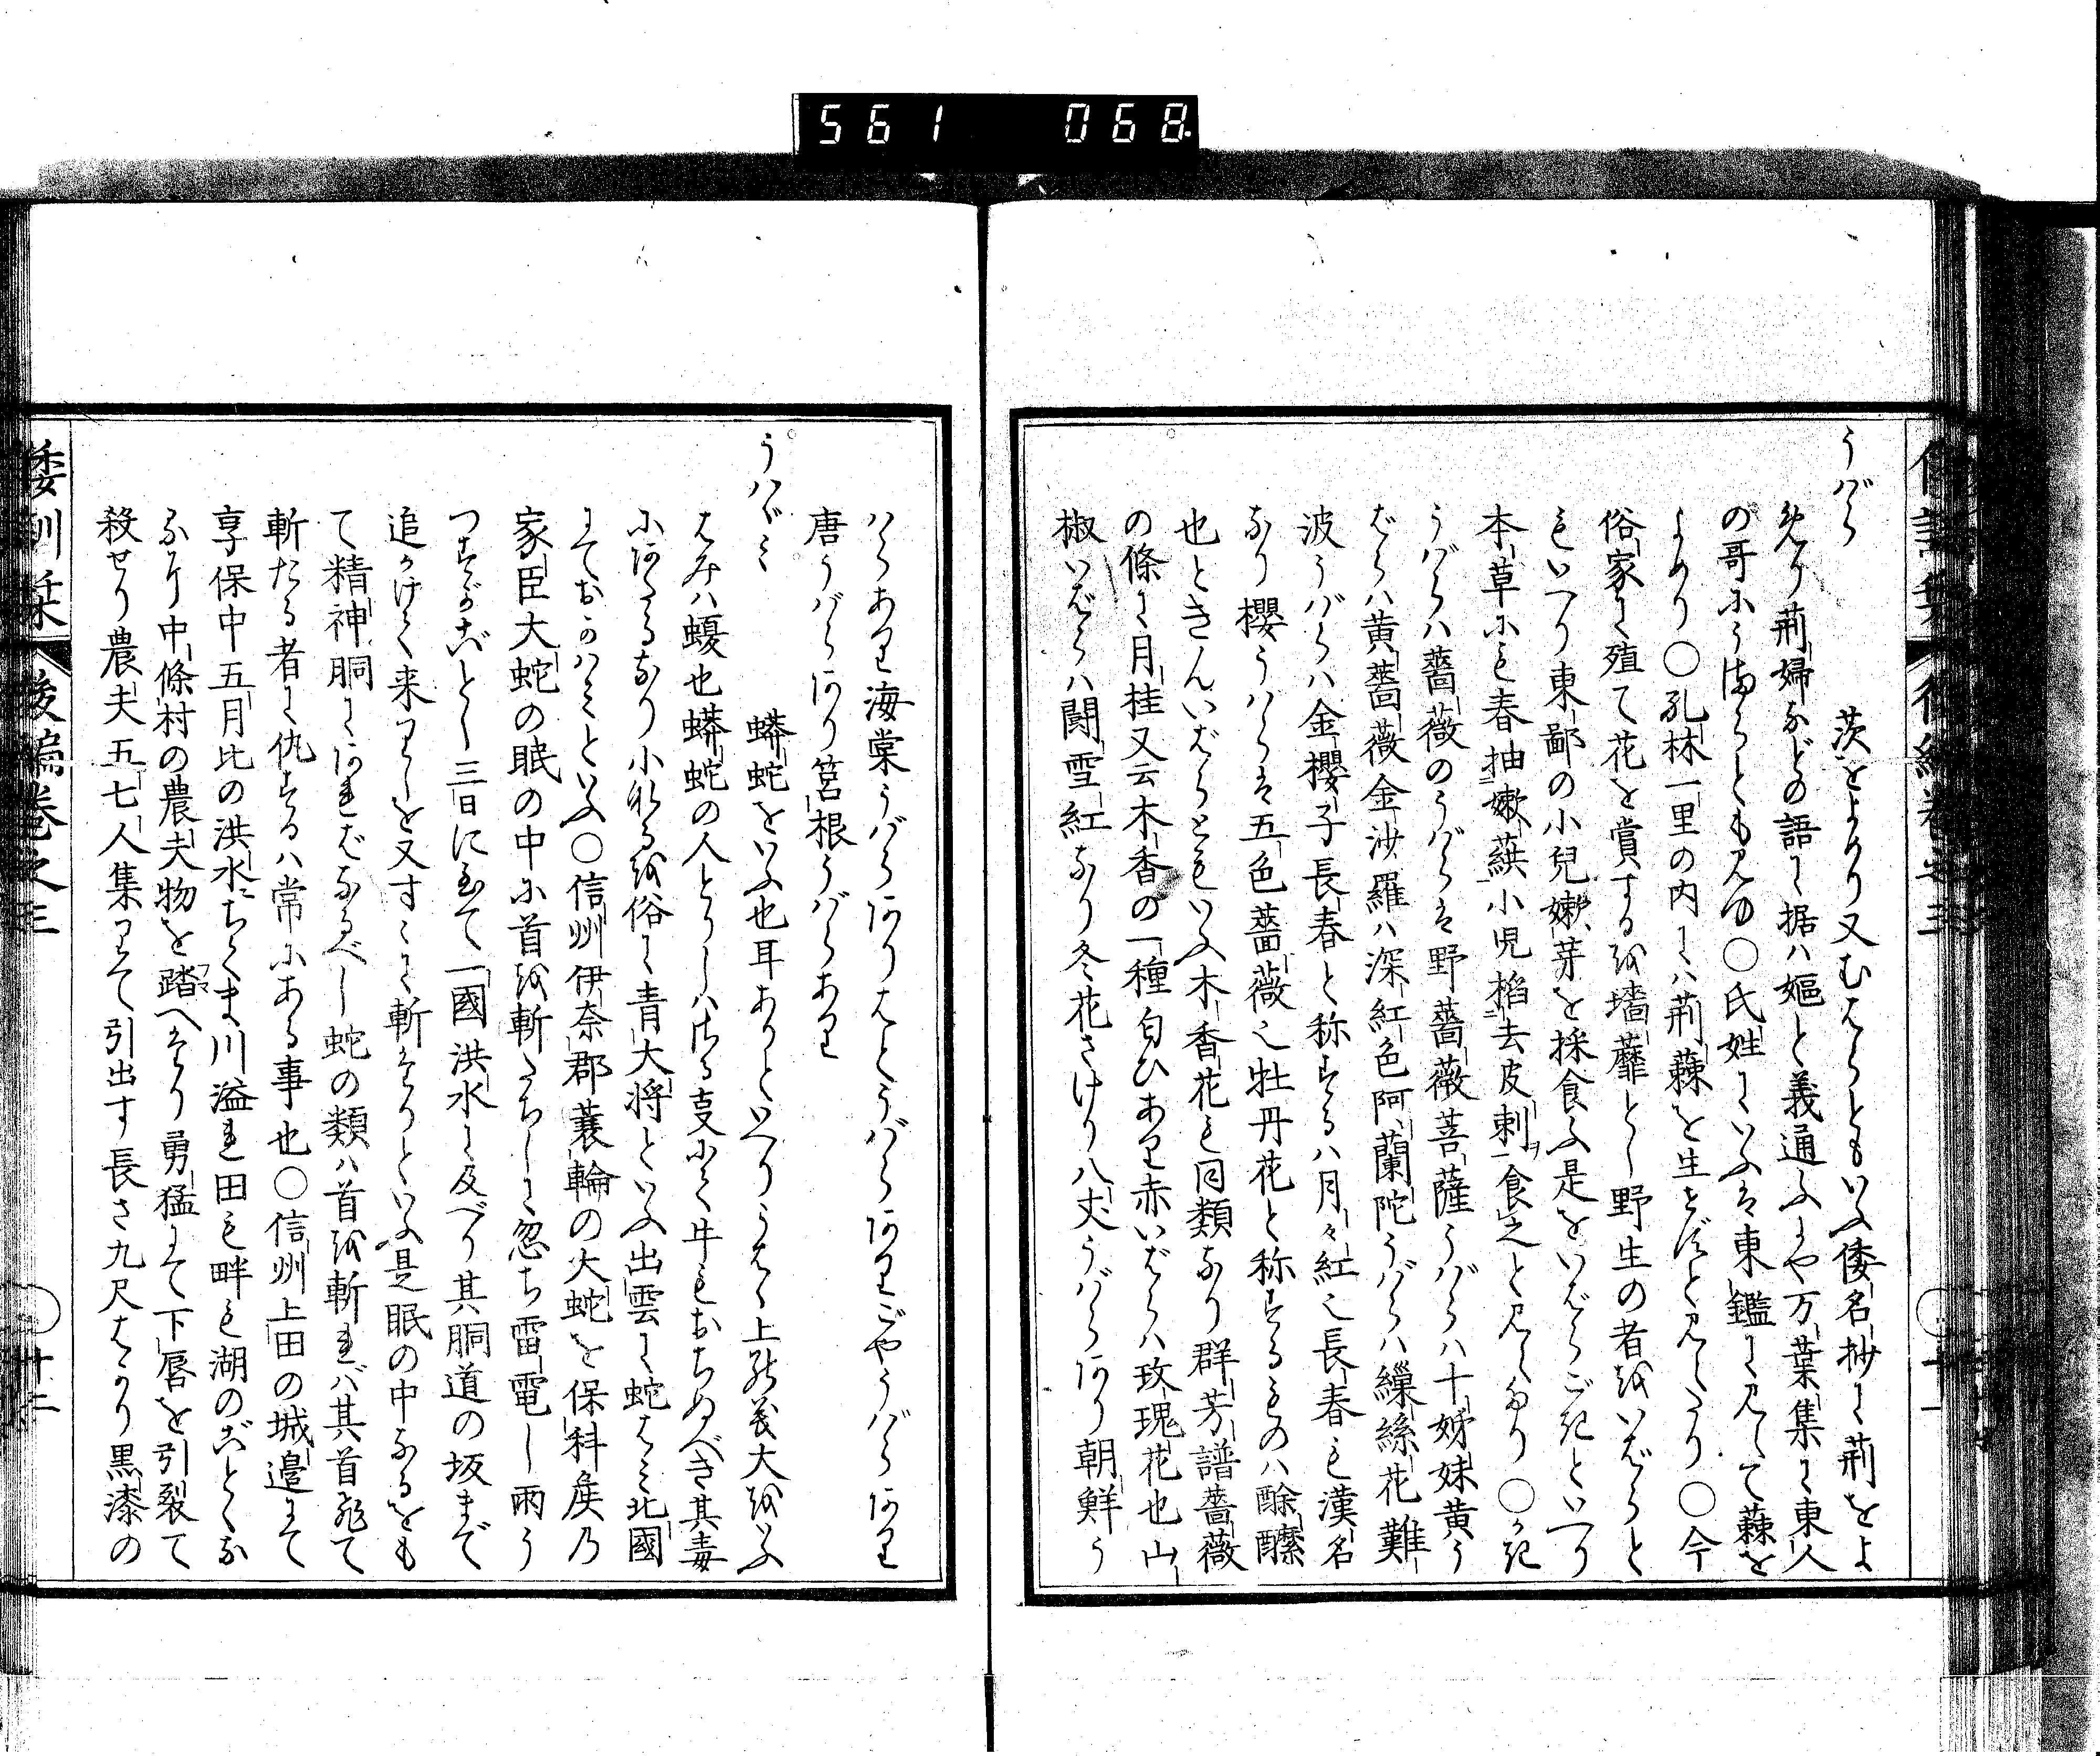 561 068
うバら 茨をよめり又むまらともいふ倭名抄に荊をよ
めり荊婦などの語に据ハ嫗と義通ふにや万葉集に東人
の哥にうまらとも見ゆ○氏姓にいふは東鑑に見えて蕀を
よめり○孔林一里の内にハ荊蕀を生せずと見えたり○今
俗家に殖て花を賞するを墻蘼とし野生の者をいばらと
もいへり東鄙の小兒嫩芽を採食ふ是をいばらごきといへり
本草にも春抽嫩蕻小児掐去皮刺食之と見えたり○
うばらハ薔薇のうばらは野薔薇菩薩うバらハ十姊妹黄う
ばらハ黄薔薇金沙羅ハ深紅色阿蘭陀うバらハ繅絲花難
波うバらハ金櫻子長春と称するハ月々紅也長春も漢名
なり櫻うバらは五色薔薇也牡丹花と称するものハ酴醾
也ときんいばらともいふ木香花も同類なり群芳譜薔薇
の條に月桂又云木香の一種匂ひあり赤いばらハ玫瑰花也山
椒いばらハ闘雪紅なり冬花さけり八丈うバらあり朝鮮う
バらあり海棠うバらありはとうバらありごやうバらあり
唐うバらあり筥根うバらあり
うハばミ 蟒蛇をいふ也耳ありといへりうハハ上の義大をいふ
はみハ蝮也蟒蛇の人とりしハさる事にて牛もおちぬべき其毒
にあたるなり小なるを俗に青大将といふ出雲に蛇はミ北國
にておかハミといふ○信州伊奈郡蓑輪の大蛇を保科侯の
家臣大蛇の眠の中に首を斬たちしに忽ち雷電し雨う
つすがごとし三日にして一國洪水に及べり其胴道の坂まで
追かけて来りしを又すミに斬たりといふ是眠の中なるをも
て精神胴にあればなるべし蛇の類ハ首を斬れバ其首飛て
斬たる者に仇するハ常にある事也○信州上田の城邉にて
享保中五月比の洪水にちくま川溢れ田も畔も湖のごとくな
るに中條村の農夫物を踏へたり勇猛にて下唇を引裂て
殺せり農夫五七人集りて引出す長さ九尺ばかり黒漆の
倭訓栞 後編巻之三 十二